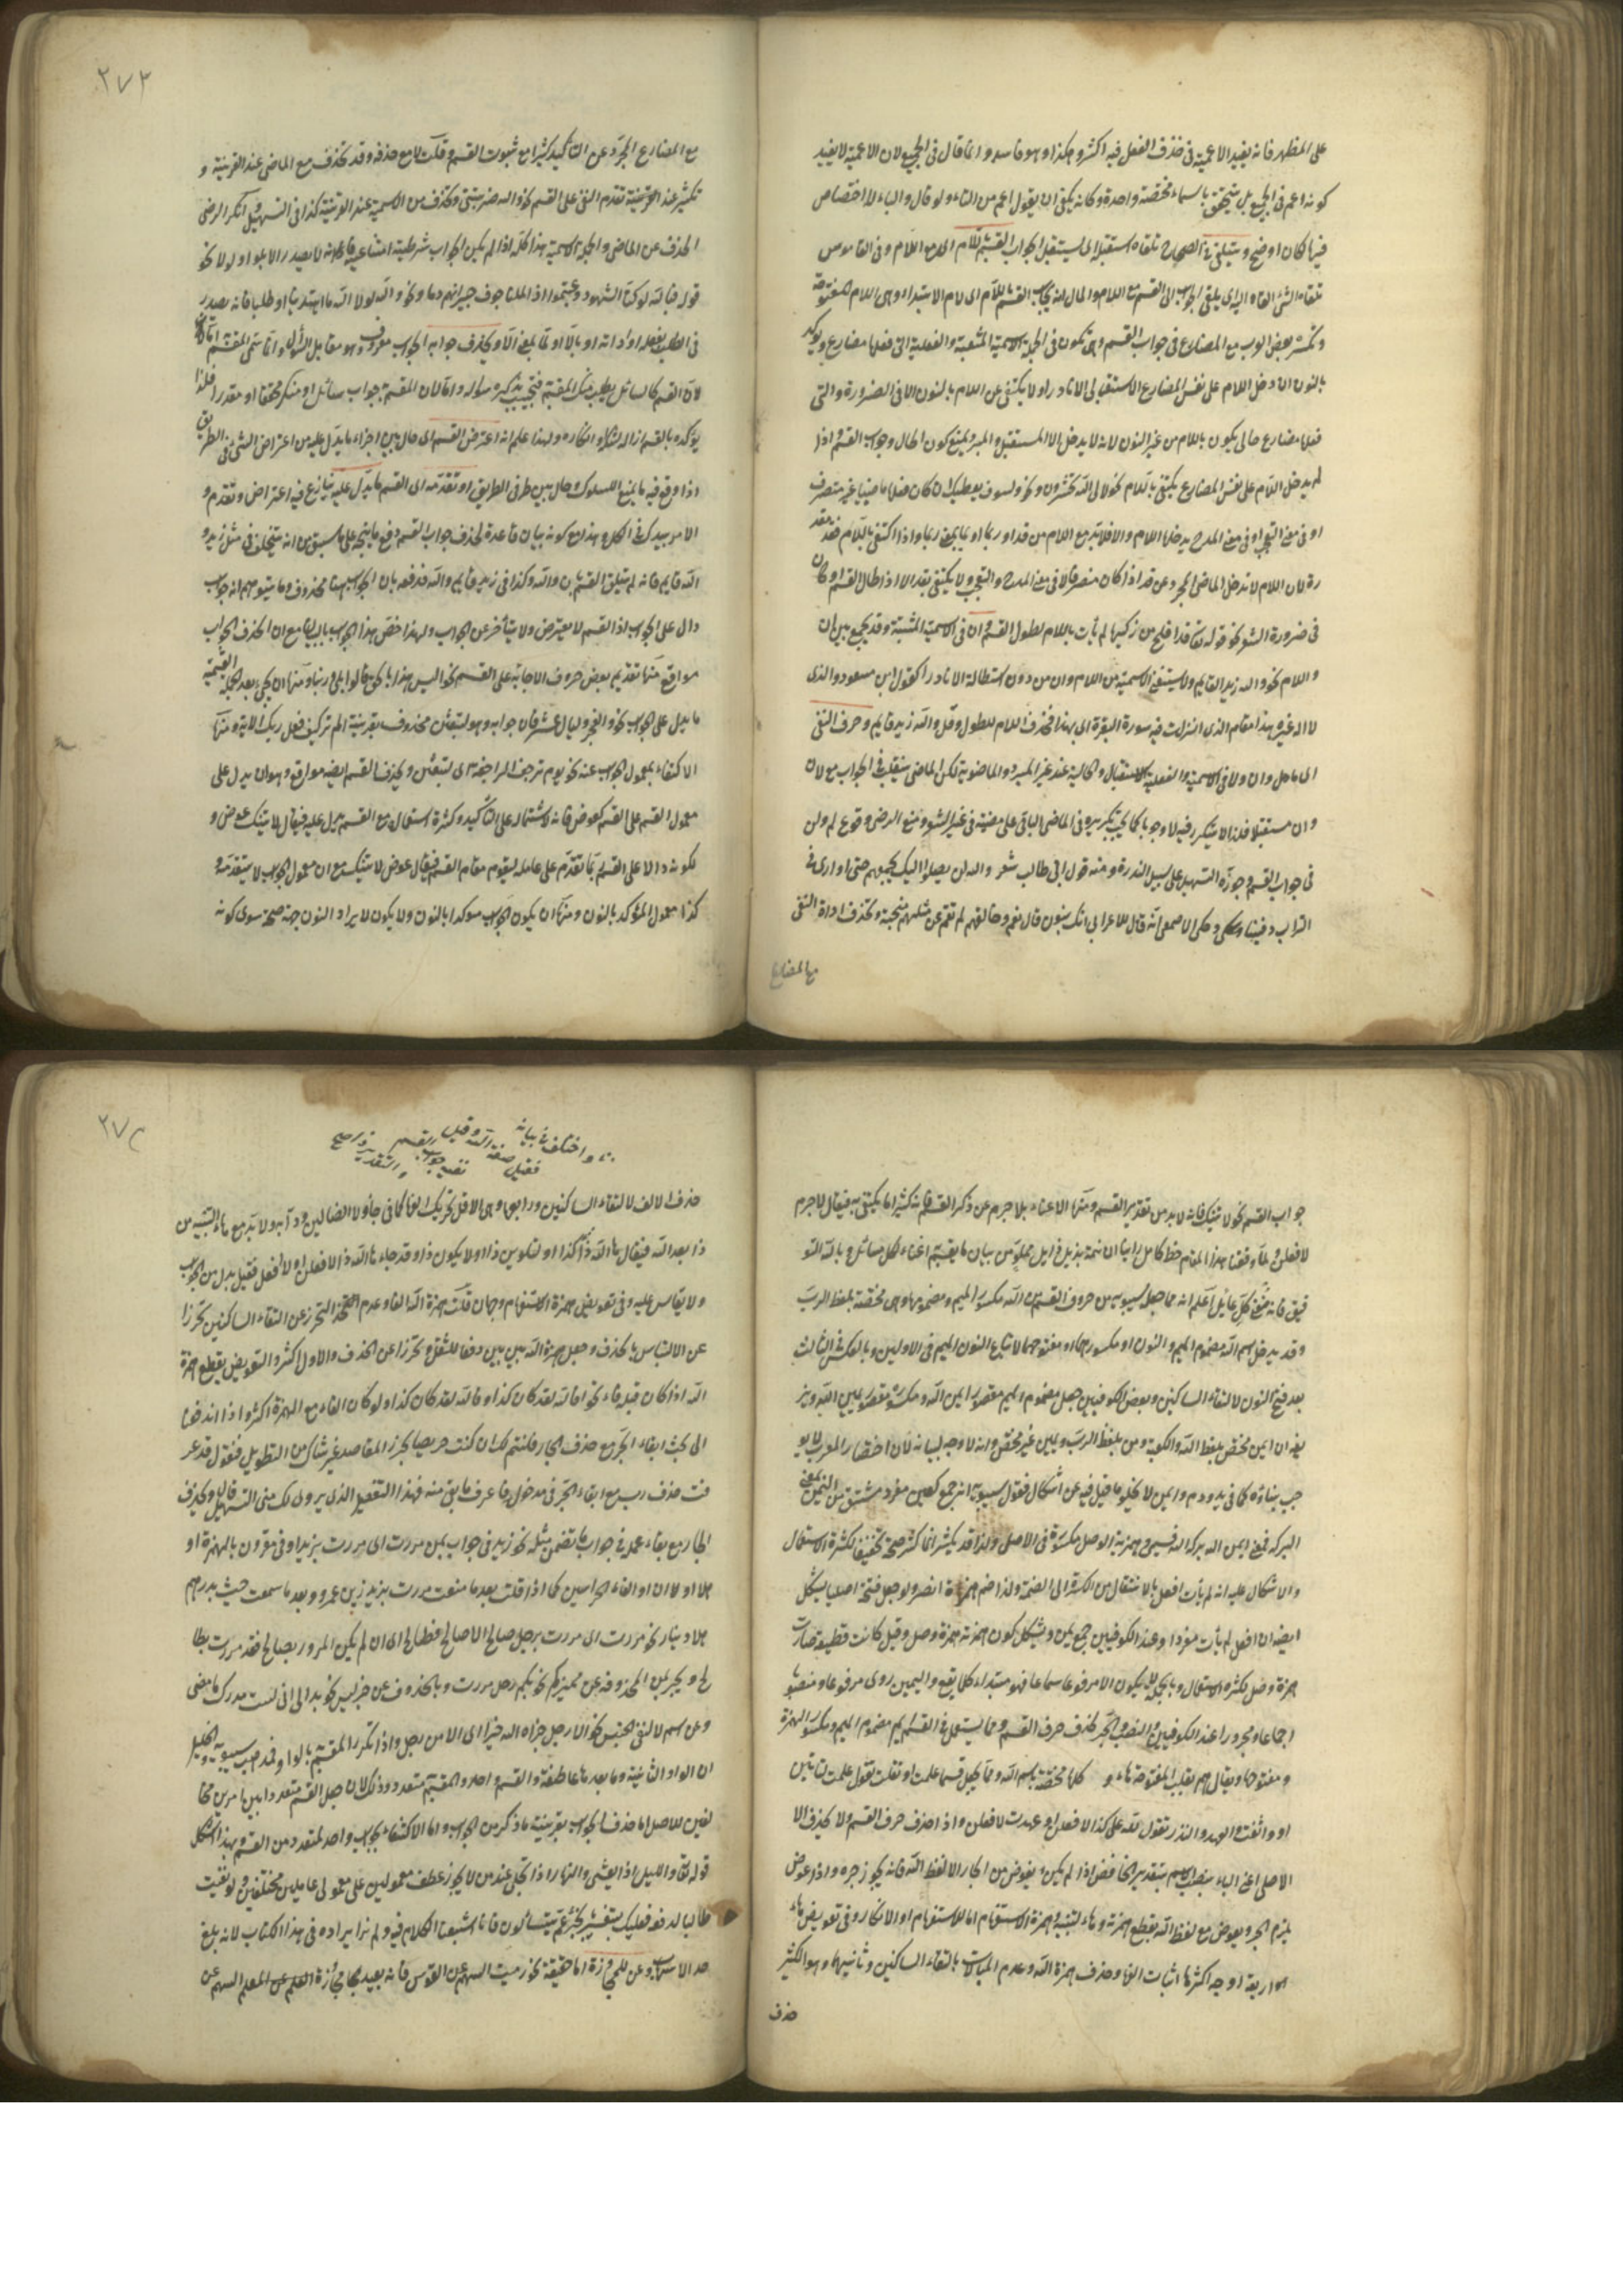 على المظهر فانه يفيد الاعمية في حذف الفعل فيه اكثر وهكذا وهو فاسد وانما قال في الجميع لان الاعمية لا يفيد
كونه اعم في الجميع بل يتحقق باسماء مختصة واحدة وكانه يكفي ان يقول اعم من التاء ولو قال والباء لا اختصاص
فيها لكان اوضح ويتلقى في الصحاح تلقاه استقبله اي يستقبل لجواب القسم باللام اي مع اللام وفي القاموس
تلقاه الشئ القاه اليه اي يلقى الجواب الى القسم مع اللام والمال انه يجاب القسم باللام اي لام الابتداء وهي اللام المفتوحة
وتكسر بعض العرب مع المضارع في جواب القسم وهي تكون في الجملة الاسمية المثبتة والفعلية التي فعلها مضارع ويؤكد
بالنون ان دخل اللام على نفس المضارع الاستقبالي الا نادرا ولا يكتفى عن اللام بالنون الا في الضرورة والتي
فعلها مضارع حالي يكون باللام من غير النون لانه لا يدخل الا المستقبل والمبرد يمنع كون الحال وجواب القسم واذا
لم يدخل اللام على نفس المضارع يكتفى باللام نحو لالى الله تحشرون ونحو ولسوف يعطيك وان كان فعلا ماضيا غير متصرف
او في معنى التعجب او في معنى المدح يدخلها اللام والا فلا بد مع اللام من قد او ربما او بما بمعنى ربما واذا اكتفى باللام فقد مقد
رة لان اللام لا تدخل الماضي المجرد عن قد اذا كان متصرفا لا في معنى المدح والتعجب ولا يكتفى بقد الا اذا طال القسم او كان
في ضرورة الشعر نحو قوله تعالى قد افلح من زكيها لم يأت باللام لطول القسم وان في الاسمية المثبتة وقد يجمع بين ان
واللام نحو والله ان زيدا لقايم ولا يستغنى الاسمية من اللام وان من دون استطالة الا نادرا كقول ابن مسعود والذي
لا اله غيره هذا مقام الذي انزلت فيه سورة البقرة اي لهذا فحذف اللام للطول وقل والله زيد قايم وحرف النفي
اي ما ولا وان ولا في الاسمية والفعلية الاستقبال والحالية عند غير المبرد والماضوية لكن الماضي ينقلب في الجواب مع لا وان
وان مستقبلا فلذا لا يتكرر فيه لا وجوبا كما يجب تكريره في الماضي الباقي على مضيه في غير الشعر ومنع الرضي وقوع لم ولن
في جواب القسم وجوزه التسهيل على سبيل الندرة ومنه قول ابي طالب شعر والله لن يصلوا اليك بجمعهم حتى اوارى في
التراب دفينا وحكى الاصمعي انه قال للاعرابي انك بنون قال نعم وخالقهم لم تقم عن مثلهم منجبة وتحذف اداة النفي
مع المضارع
٢٧٣
مع المضارع المجرد عن التأكيد كثيرا مع ثبوت القسم وقلت لا مع حذفه وقد تحذف مع الماضي عند القرينة و
تكثر عند القرينة تقدم النفي على القسم نحو والله ضربتني وتحذف من الاسمية عند القرينة كذا في التسهيل انكر الرضي
الحذف عن الماضي والجملة الاسمية هذا كله اذا لم يكن الجواب شرطية امتناعية فانه لا يصدر الا بلو او لولا نحو
قوله فبالله لو كنا الشهود وغبتم اذا لملأنا جوف جيرانهم دما ونحو والله لولا الله ما اهتدينا او طلبا فانه يصدر
في الطلب بفعله او اداته او بالا او لما بمعنى الا ويحذف جوابه الجواب معروف وهو مقابل السؤال وانما سمى المقسم
لان القسم كالسائل يطلب منك المقسم فتجيب بذكره سؤاله واما لان المقسم جواب سائل او منكر محققا او مقدرا فلذا
يؤكده بالقسم ازالة لشكه او انكاره ولهذا علم انه اعترض القسم اي حال بين اجزاء ما يدل عليه من اعترض الشئ في الطريق
اذا وقع فيه ما يمنع السلوك وحال بين طرفي الطريق او تقدمه اي القسم ما يدل عليه تنازع فيه اعترض وتقدم و
الامر بيدك في الكل وهذا مع كونه بيان قاعدة لحذف جواب القسم دفع ما يتجه على ما سبق من انه يتخلف في مثل زيد و
الله قايم فانه لم يتلق القسم بان والله وكذا في زيد قايم والله فدفعه بان الجواب هنا محذوف وما يتوهم انه جواب
دال على الجواب اذ القسم لا يعترض ولا يتأخر عن الجواب ولهذا خص هذا الجواب بالبيان مع ان لحذف الجواب
مواقع منها تقديم بعض حروف الاجابة على القسم نحو اليس هذا بالحق قالوا بلى وربنا ومنها ان يجيء بعد الجملة القسمية
ما يدل على الجواب نحو والفجر وليال عشر فان جوابه وهو لتبعثن محذوف بقرينة الم تر كيف فعل ربك الآية ومنها
الاكتفاء بمعمول الجواب عنه نحو يوم ترجف الراجفة اي لتبعثن ويحذف القسم ايضا مواقع وهو ان يدل على
معمول القسم على القسم كعوض فانه لاشتماله على التأكيد وكثرة استعماله مع القسم يدل عليه فيقال لا آتيك عوض و
لكونه دالا على القسم ربما تقدم على عامله ليقوم مقام القسم فيقال عوض لا آتيك مع ان معمول الجواب لا يتقدمه
كذا معمول المؤكد بالنون ومنها ان يكون الجواب موكدا بالنون ولا يكون لايراد النون جهة صحة سوى كونه
جواب القسم نحو لا ضربنك فانه لا بد من تقدير القسم ومنها الاغتناء بلا جرم عن ذكر القسم فانه كثيرا ما يكتفى به فيقال لا جرم
لافعلن ولما وفقنا بهذا المقام حظ كامل راينا ان نتمه بذيل في ايل من بيان ما يقسم اغناء لكل سائل وبالله التو
فيق فانه منح كل عائل اعلم انه مما جعل سيبويه من حروف القسم من الله مكسور الميم ومضمومها وهي مختصة بلفظ الرب
وقد يدخل اسم الله مضموم الميم والنون او مكسورهما او مفتوحهما لاتباع النون الميم في الاولين وبالعكس في الثالث
بعد فتح النون لالتقاء الساكنين وبعض الكوفيين جعل مضموم الميم مقصور ايمن الله ومكسوره مقصور يمين الله ويز
يفه ان ايمن مختص بلفظ الله والكعبة ومن بلفظ الرب ويمين غير مختص وانه لا وجه لبنائه لان اختصار المعرب لا يو
جب بناؤه كما في يد ودم وايمن لا يخلو ما قيل فيه عن اشكال فقول سيبويه انه جمع كمين مفرد مشتق من اليمن بمعنى
البركة فمعنى ايمن الله بركة الله قسمي وهمزته الوصل مكسورة في الاصل ولذا قد يكسر انما كثر فتحه تخفيفا لكثرة الاستعمال
والاشكال عليه انه لم يأت افعل بالانتقال من الكسرة الى الضمة ولذا ضم همزة انصر ولو جعل فتحه اصليا يشكل
ايضا ان افعل لم يأت مفردا وعند الكوفيين جمع يمين ويشكل كون همزته همزة وصل وقيل كانت قطعية صارت
همزة وصل لكثرة الاستعمال وبالجملة لا يكون الا مرفوعا سماعا فهو مبتداء كما يقع واليمين يروى مرفوعا ومنصوبا
اجماعا ومجرورا عند الكوفيين والنصب والجر بحذف حرف القسم ومما يستعمل في القسم ايم مضموم الميم ومكسور الهمزة
ومفتوحها ويقال هيم بقلب المفتوحة هاء و كلها مختصة باسم الله ومما يجعل قسما علمت او نقلت تقول علمت لتأتين
او واثقت والعهد والنذر تقول لله علي كذا لافعلن او عهدت لافعلن واذا حذف حرف القسم ولا يحذف الا
الاصلي اعني الباء ينصب الاسم بتقدير الخافض اذا لم يكن يعوض من الجار الا لفظ الله فانه يجوز جره واذا عوض
يلزم الجر ويعوض مع لفظ الله بقطع همزته وهاء التنبيه وهمزة الاستفهام اما للاستفهام او الانكار وفي تعويض هاء
اربعة اوجه اكثرها اثبات الفها وحذف همزة الله وعدم المبالات بالتقاء الساكنين وثانيهما وهو الكثير
حذف
٢٧٤
واختلف في بيانه
فقيل صفة الله وقيل
نفسه جواب القسم
والتقدير
حذف الالف لالتقاء الساكنين ورابعها وهي الاقل تحريك الفها كما في جأن ولا الضالين ودأبة ولا بد مع هاء التنبيه من
ذا بعد الله فيقال ها الله ذا كذا او لتكونن ذا ولا يكون ذا وقد جاء ها الله ذا لافعلن او لا افعل فقيل بدل من الجواب
ولا يقاس عليه وفي تعويض همزة الاستفهام وجهان قلب همزة الله الفا وعدم التحرز عن التقاء الساكنين تحرزا
عن الالتباس بالحذف وجعل همزة الله بين بين دفعا للثقل وتحرزا عن الحذف والاول اكثر والتعويض بقطع همزة
الله اذا كان قبله فاء نحو افالله لقد كان كذا وفالله لقد كان كذا ولو كان الفاء مع الهمزة اكثر واذا اندفعنا
الى بحث ابقاء الجر مع حذف الجار فلنتم لك ان كنت حريصا بحرز المقاصد غير شاك من التطويل فنقول قد عر
فت حذف رب مع ابقاء الجر في مدخولها عرف ما بقي منه فهذا التفصيل الذي يروى لك متن التسهيل قال ويحذف
الجار مع بقاء عمله في جواب ما تضمن مثله نحو زيد في جواب بمن مررت اي مررت بزيد او في مقرون بالهمزة او
هلا او ان او الفاء الجزائيين كما اذا قلت بعد ما سمعت مررت بزيد ازيد بن عمرو وبعد ما سمعت جئت بدرهم
هلا دينار نحو مررت اي مررت برجل صالح الا صالح فطالح اي ان لم يكن المرور بصالح فقد مررت بطا
لح ويجر بمن المحذوفة عن مميز كم نحو بكم رجل مررت وبالمحذوف عن خبر ليس نحو بدا لي اني لست مدرك ما مضى
وعن اسم لا لنفي الجنس نحو الا رجل جزاه الله خيرا اي الا من رجل واذا تكرر المقسم به بالواو فمذهب سيبويه والخليل
ان الواو الثانية وما بعدها عاطفة والقسم واحد والمقسم متعدد وذلك لان جعل القسم متعددا بين امرين مخا
لفين للاصل اما حذف الجواب بقرينة ما ذكر من الجواب واما الاكتفاء بجواب واحد لمتعدد من القسم وبهذا اشكل
قوله تعالى والليل اذا يغشى والنهار اذا تجلى عند من لا يجوز عطف معمولين على معمولي عاملين مختلفين ولو بقيت
طالبا لدفعه فعليك بتفسير جزء عم يتسائلون فانا اشبعنا الكلام فيه ولم نر ايراده في هذا الكتاب لانه بلغ
حد الاسهاب وعن للمجاوزة اما حقيقة نحو رميت السهم عن القوس فانه بعيد بمجاوزة السهم عن